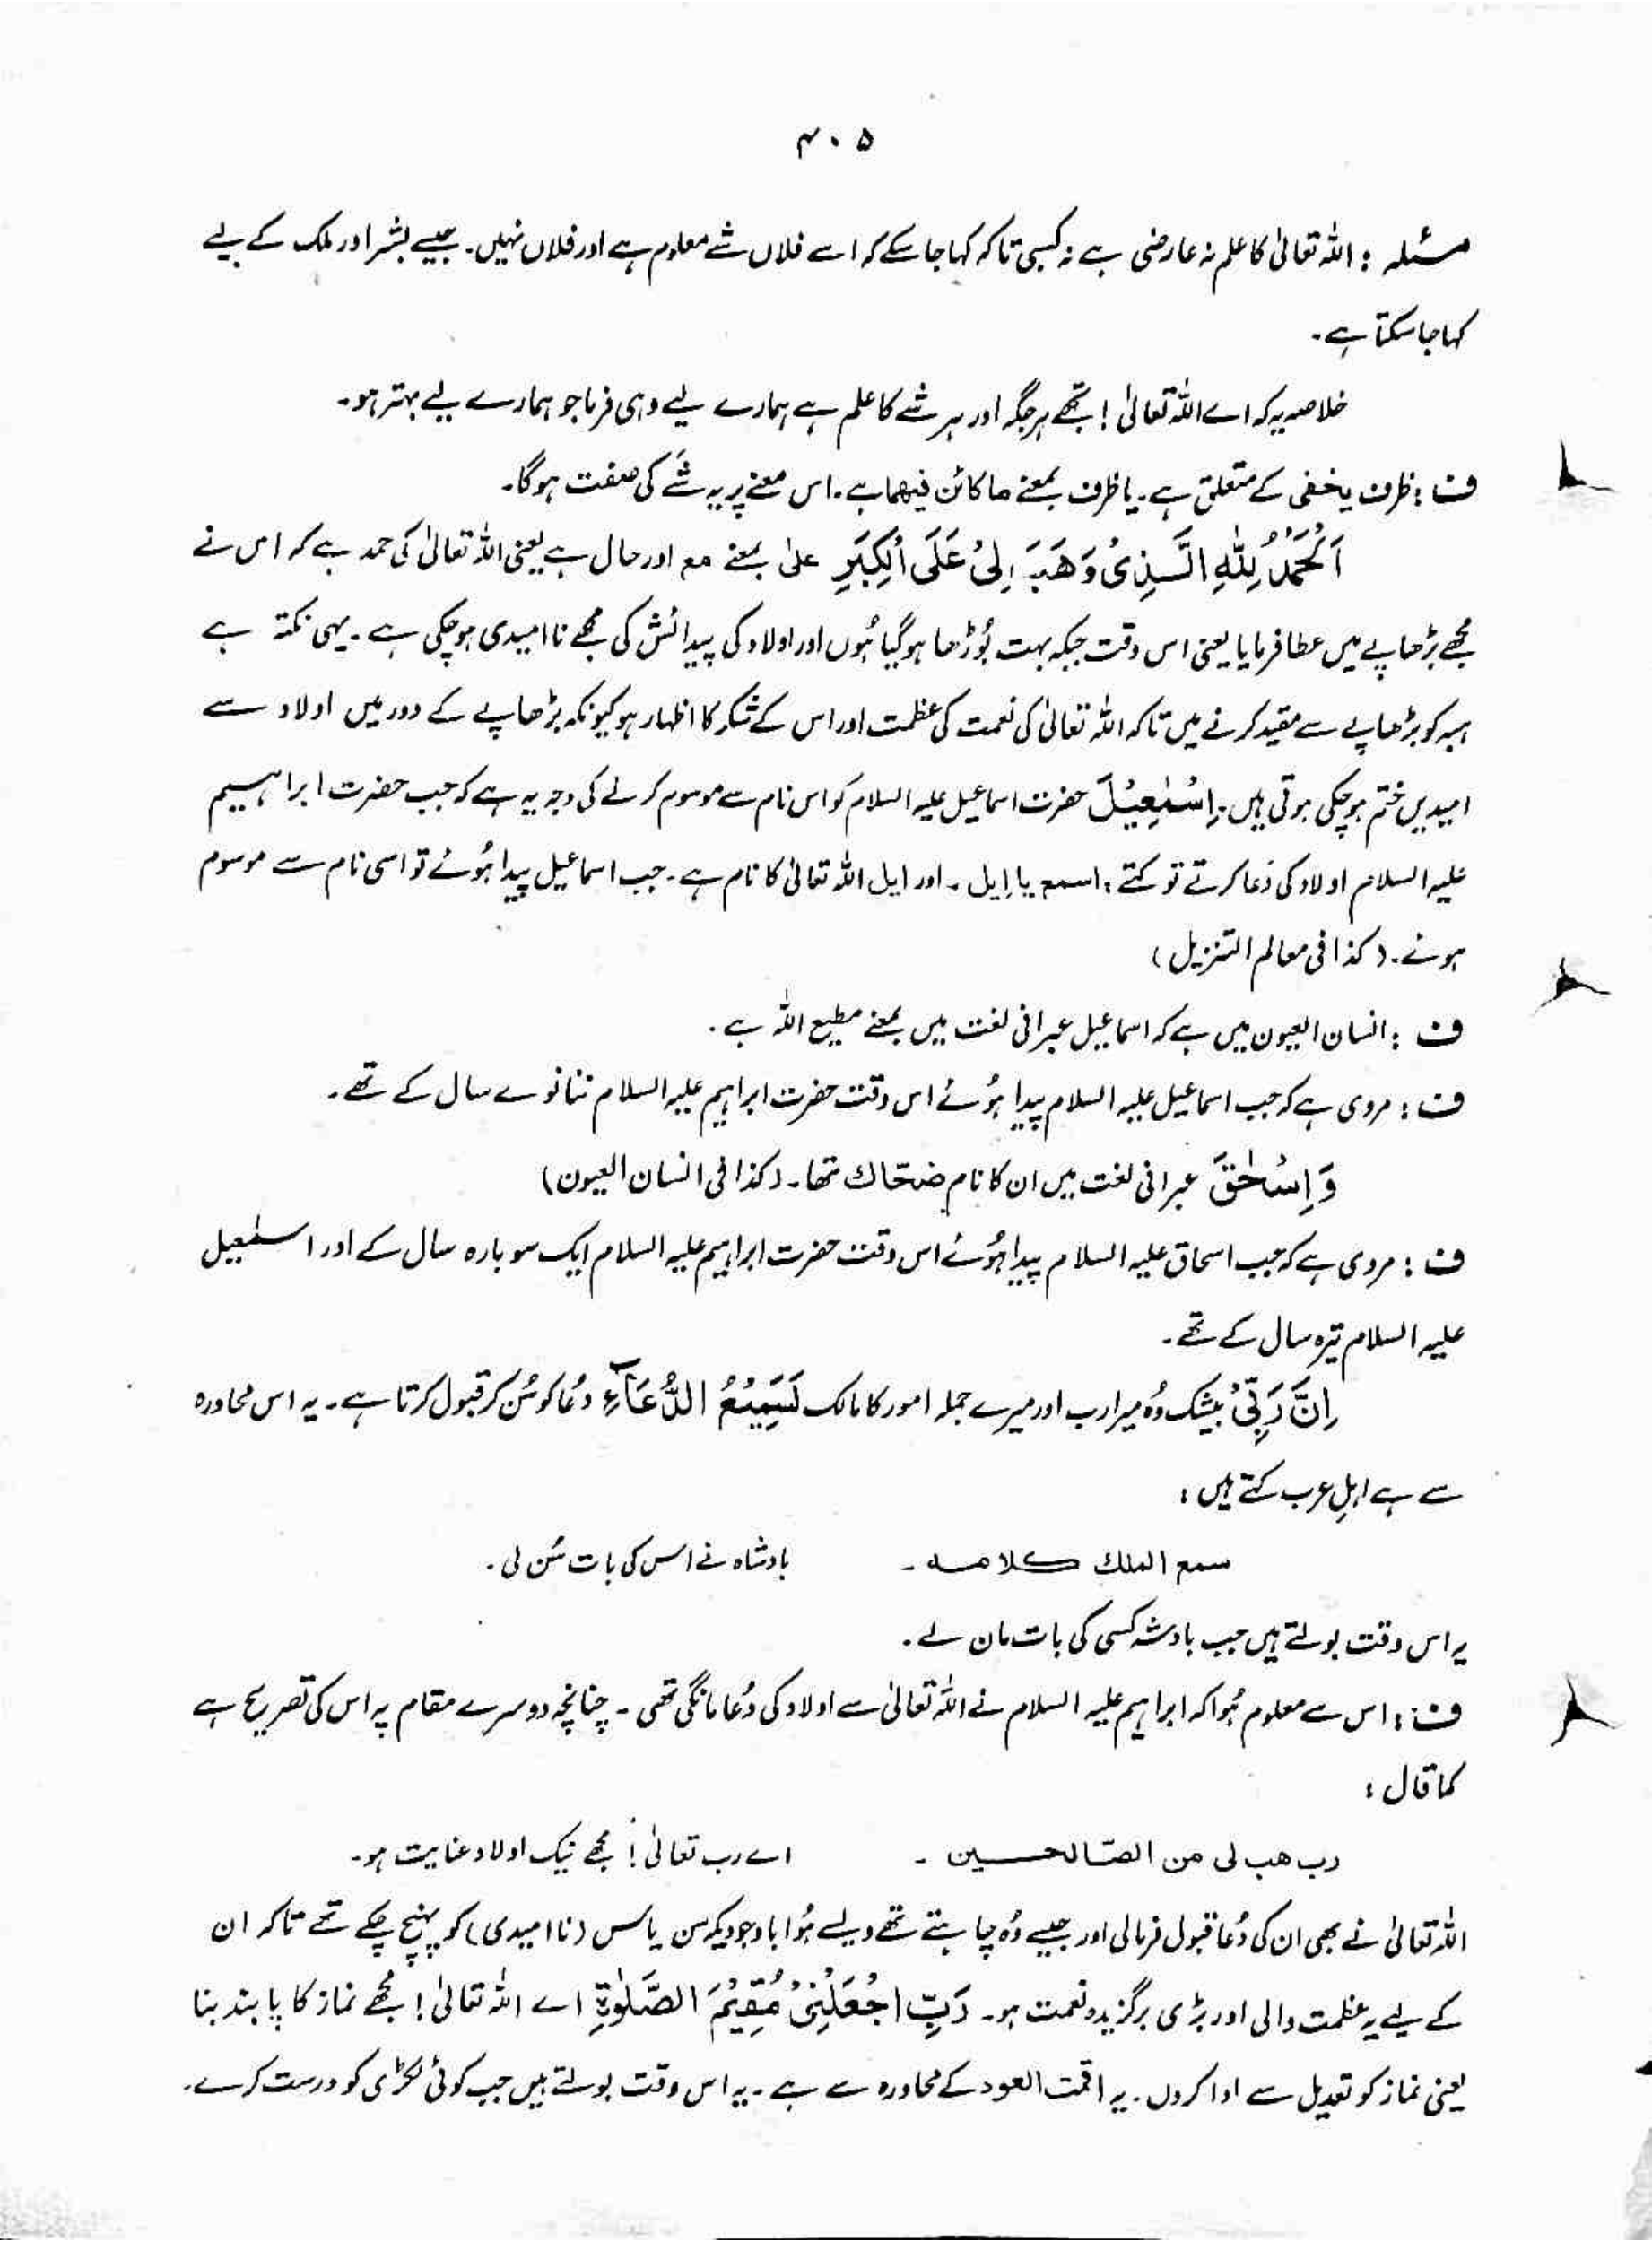 ۴۰۵
مسئلہ : اللہ تعالیٰ کا علم نہ عارضی ہے نہ کسبی تاکہ کہا جا سکے کہ اسے فلاں شے معلوم ہے اور فلاں نہیں۔ جیسے بشر اور ملک کے لیے
کہا جا سکتا ہے۔
خلاصہ یہ کہ اے اللہ تعالیٰ ! تجھے ہر جگہ اور ہر شے کا علم ہے ہمارے لیے وہی فرما جو ہمارے لیے بہتر ہو۔
ف : ظرف یخفی کے متعلق ہے۔ یا ظرف بمعنے ما کائن فیھما ہے۔ اس معنے پر یہ شَے کی صفت ہوگا۔
اَلْحَمْدُ لِلّٰہِ الَّذِیْ وَھَبَ لِیْ عَلَی الْکِبَرِ علیٰ بمعنے مع اور حال ہے یعنی اللہ تعالیٰ کی حمد ہے کہ اس نے
مجھے بڑھاپے میں عطا فرمایا یعنی اس وقت جبکہ بہت بُوڑھا ہوگیا ہُوں اور اولاد کی پیدائش کی مجھے ناامیدی ہوچکی ہے۔ یہی نکتہ ہے
ہبہ کو بڑھاپے سے مقید کرنے میں تاکہ اللہ تعالیٰ کی نعمت کی عظمت اور اس کے شکر کا اظہار ہو کیونکہ بڑھاپے کے دور میں اولاد سے
امیدیں ختم ہوچکی ہوتی ہیں۔ اِسْمٰعِیْلَ حضرت اسماعیل علیہ السلام کو اس نام سے موسوم کرنے کی وجہ یہ ہے کہ جب حضرت ابراہیم
علیہ السلام اولاد کی دُعا کرتے تو کہتے : اسمع یا اِیل ۔ اور ایل اللہ تعالیٰ کا نام ہے۔ جب اسماعیل پیدا ہُوئے تو اسی نام سے موسوم
ہوئے۔ (کذا فی معالم التنزیل)
ف : انسان العیون میں ہے کہ اسماعیل عبرانی لغت میں بمعنے مطیع اللہ ہے ۔
ف : مروی ہے کہ جب اسماعیل علیہ السلام پیدا ہُوئے اس وقت حضرت ابراہیم علیہ السلام ننانوے سال کے تھے ۔
وَاِسْحٰقَ عبرانی لغت میں ان کا نام ضحّاک تھا۔ (کذا فی انسان العیون)
ف : مروی ہے کہ جب اسحاق علیہ السلام پیدا ہُوئے اس وقت حضرت ابراہیم علیہ السلام ایک سو بارہ سال کے اور اسمٰعیل
علیہ السلام تیرہ سال کے تھے ۔
اِنَّ رَبِّیْ بیشک وُہ میرا رب اور میرے جملہ امور کا مالک لَسَمِیْعُ الدُّعَآءِ دُعا کو سُن کر قبول کرتا ہے۔ یہ اس محاورہ
سے ہے اہلِ عرب کہتے ہیں :
سمع الملک کلامہ ۔ بادشاہ نے اس کی بات سُن لی ۔
یہ اس وقت بولتے ہیں جب بادشہ کسی کی بات مان لے ۔
ف : اس سے معلوم ہُوا کہ ابراہیم علیہ السلام نے اللہ تعالیٰ سے اولاد کی دُعا مانگی تھی ۔ چنانچہ دوسرے مقام پر اس کی تصریح ہے
کما قال :
رب ھب لی من الصّالحین ۔ اے رب تعالیٰ ! مجھے نیک اولاد عنایت ہو۔
اللہ تعالیٰ نے بھی ان کی دُعا قبول فرمالی اور جیسے وُہ چاہتے تھے ویسے ہُوا باوجودیکہ سن یاس (ناامیدی) کو پہنچ چکے تھے تاکہ ان
کے لیے یہ عظمت والی اور بڑی برگزیدہ نعمت ہو۔ رَبِّ اجْعَلْنِیْ مُقِیْمَ الصَّلٰوۃِ اے اللہ تعالیٰ ! مجھے نماز کا پابند بنا
یعنی نماز کو تعدیل سے ادا کروں ۔ یہ اقمت العود کے محاورہ سے ہے ۔ یہ اس وقت بولتے ہیں جب کوئی لکڑی کو درست کرے۔